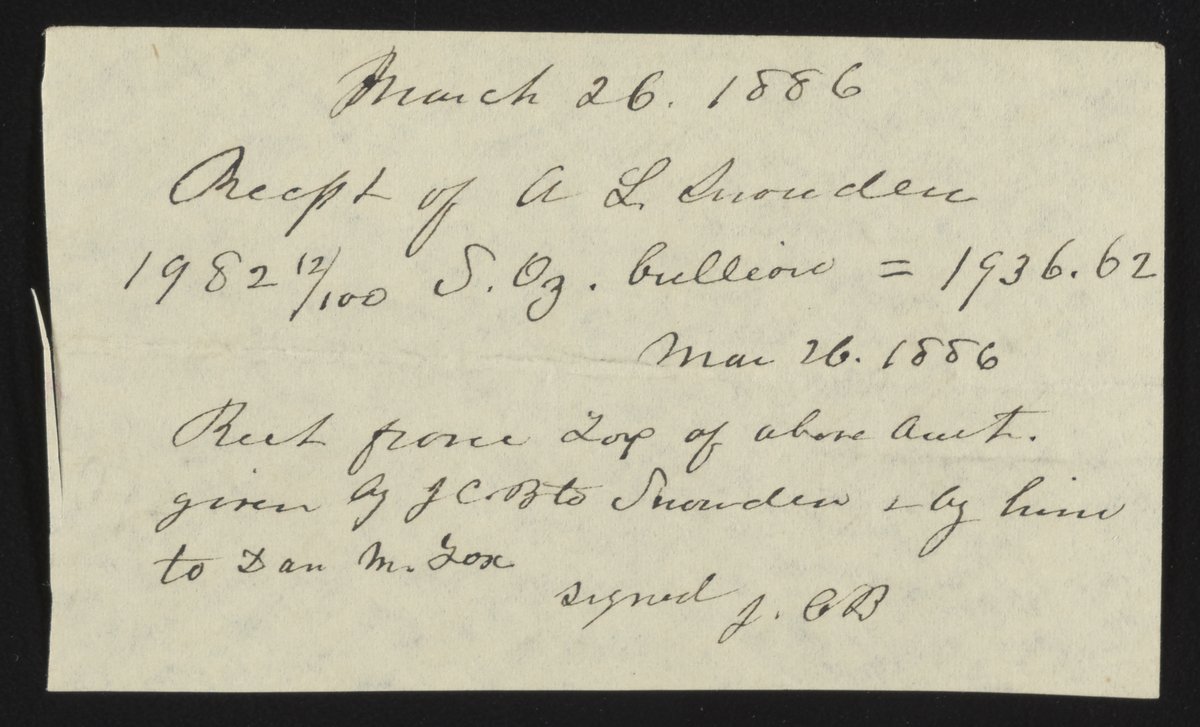 March 26. 1886
Recpt of A L Snowden
1982 12/100 S. Oz. bullion = 1936.62
Mar 26. 1886
Rect from Fox of above Amt.
given by J C B to Snowden & by him
to Dan M. Fox
signed J. C B